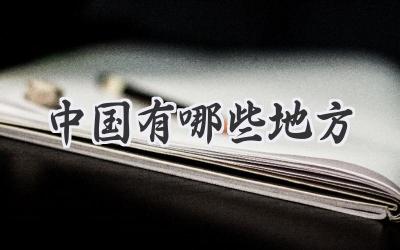 中国有哪些地方